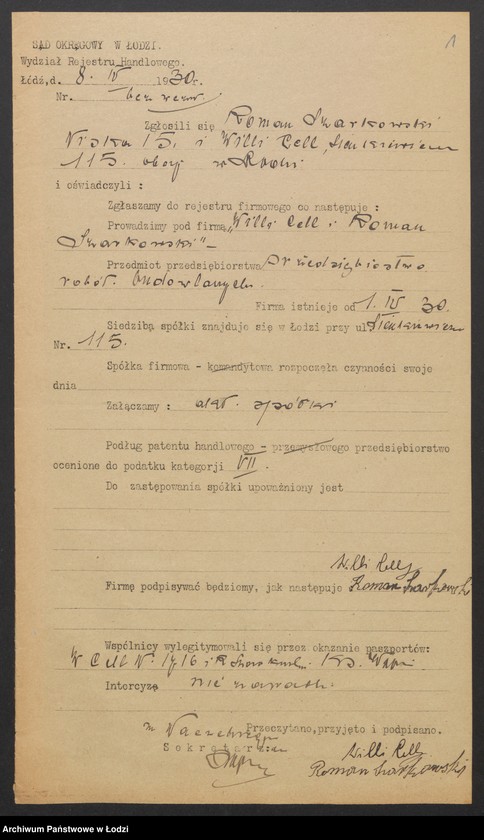 1
SĄD OKRĘGOWY W ŁODZI.
Wydział Rejestru Handlowego.
Łódź,d. 8. IV 1930r.
Nr.
Zgłosili się Roman Szarkowski
i Willi Cell, Sienkiewicza
115. obaj w Łodzi
i oświadczyli :
Zgłaszamy do rejestru firmowego co następuje :
Prowadzimy pod firmą „Willi Cell i Roman
Szarkowski"
Przedmiot przedsiębiorstwa Przedsiębiorstwo
robót budowlanych.
Firma istnieje od 1. IV 30.
Siedzibą spółki znajduje się w Łodzi przy ul. Sienkiewicza
Nr. 115.
Spółka firmowa - komandytowa rozpoczęła czynności swoje
dnia
Załączamy : akt. spółki
Podług patentu handlowego - przemysłowego przedsiębiorstwo
ocenione do podatku kategorji VII.
Do zastępowania spółki upoważniony jest
Willi Cell
Firmę podpisywać będziemy, jak następuje Roman Szarkowski
Wspólnicy wylegitymowali się przez okazanie paszportów:
W Cell N. 1716 i R.
Intercyzę nie zawarli.
Przeczytano,przyjęto i podpisano.
Sekretarz
Willi Cell
Roman Szarkowski
Archiwum Państwowe w Łodzi